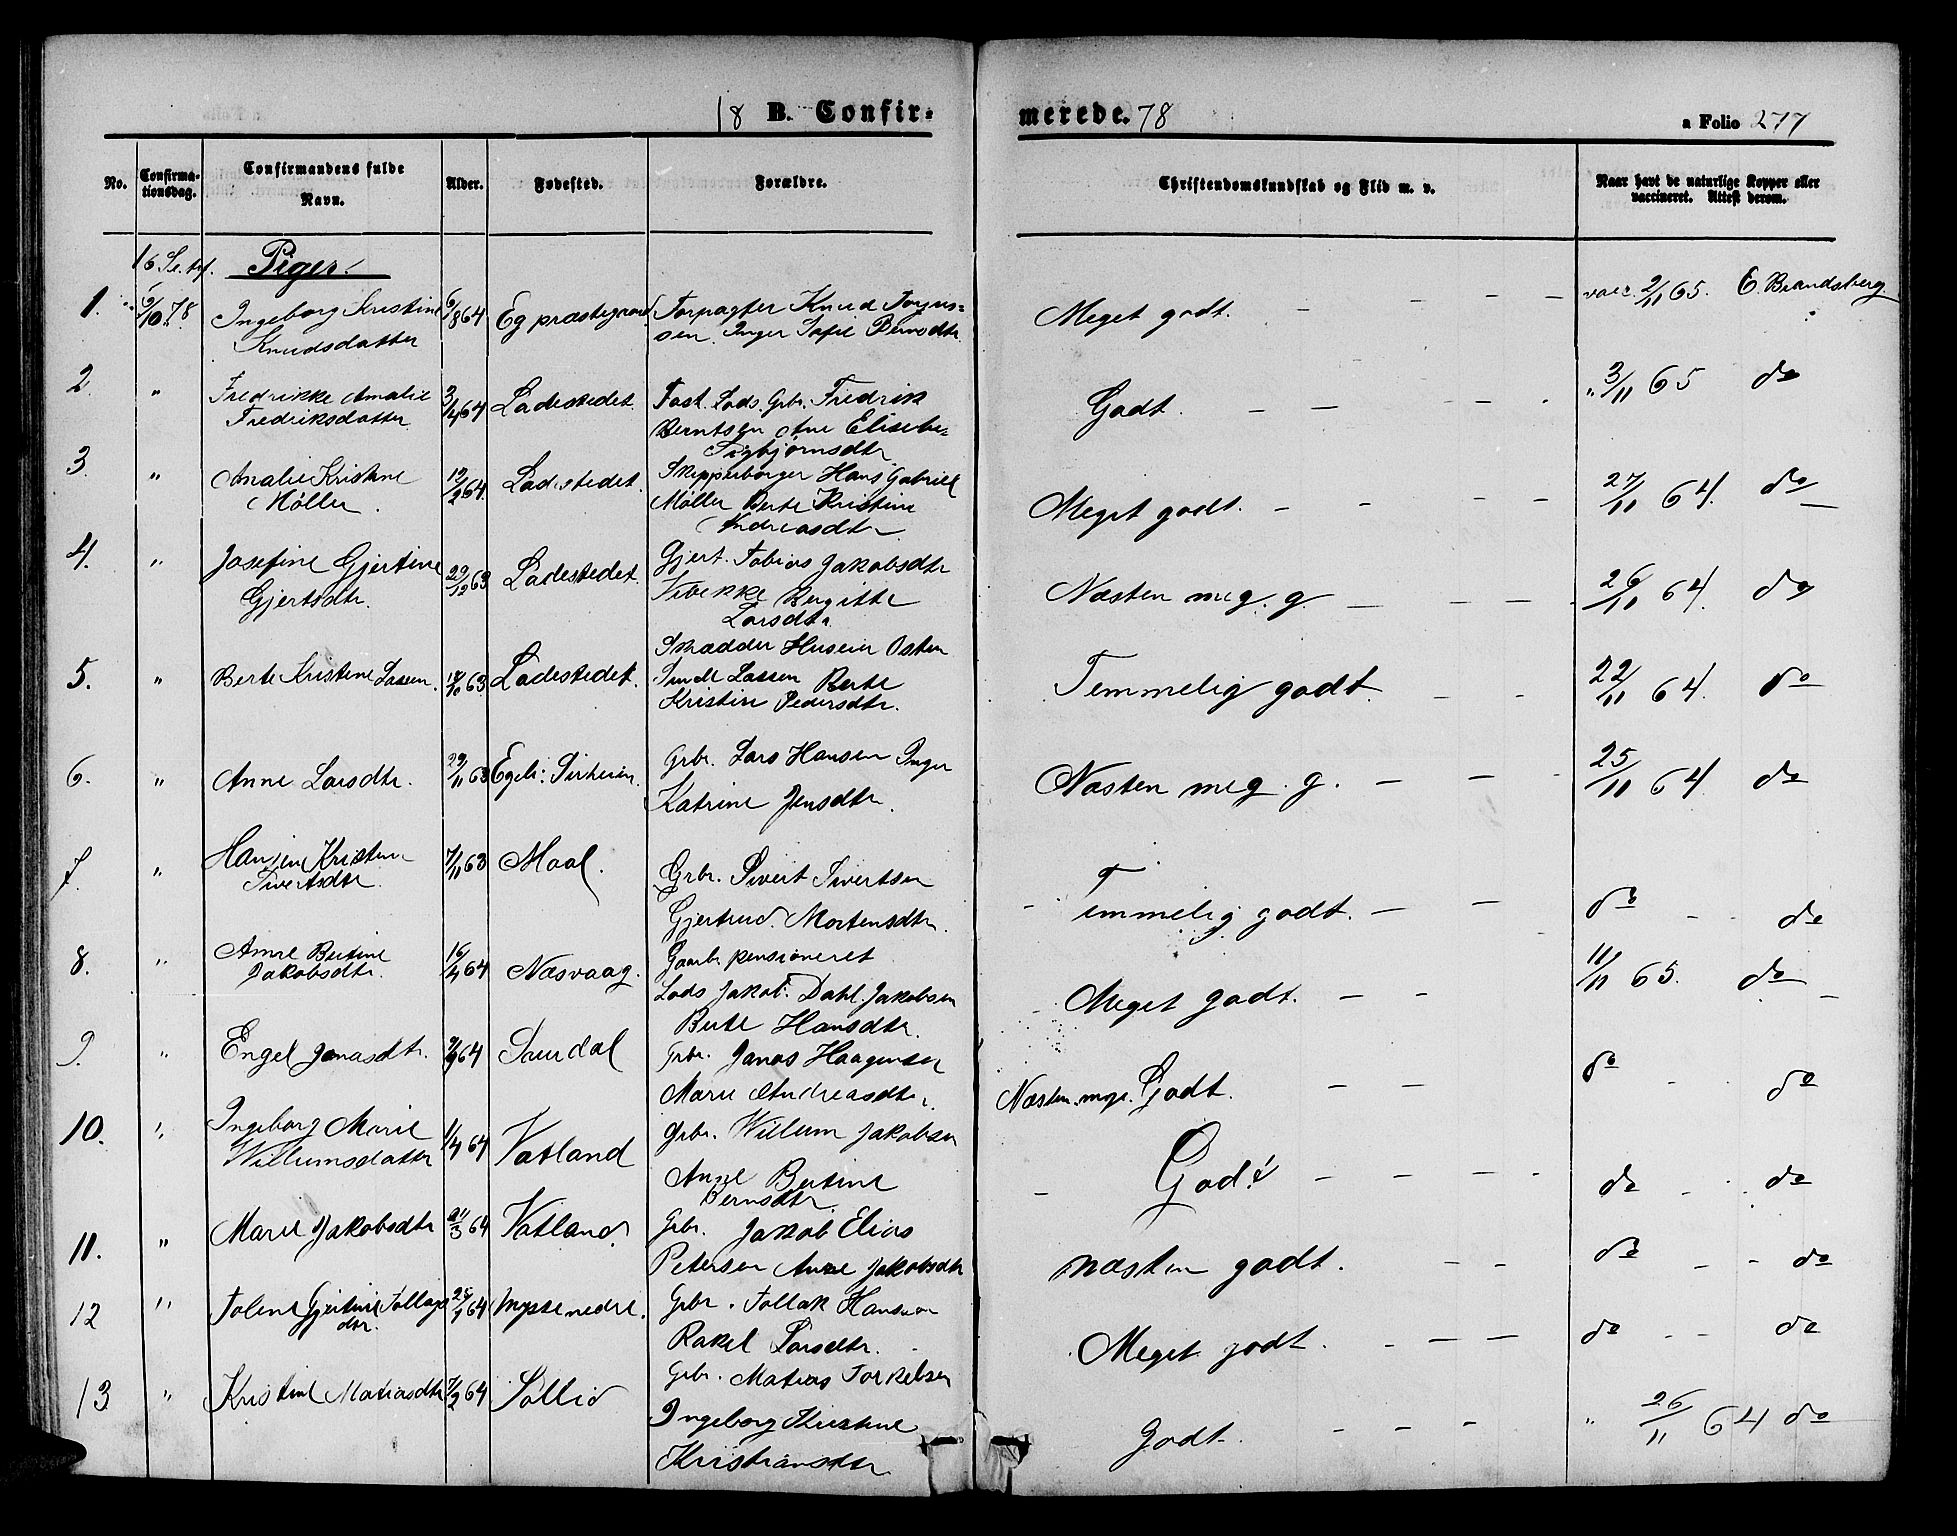 18 B. Confirmerede. 78
a Folio 277
No.
Confirmationsdag.
Confirmandens fulde Navn.
Alder.
Fødested.
Forældre.
Christendomskundskab og Flid m. v.
Naar havt de naturlige Kopper eller vaccineret. Attest derom.
Piger.
1. 6/10 78 Ingeborg Kristine 6/8 64 Eg præstegaard Forpagter Knud Torjus- Meget godt. — — — vacc. 2/11 65. E. Brandsberg
Knudsdatter sen. Inger Sofie Berndtr.
2. " Fredrikke Amalie 3/4 64 Ladestedet. Fast. Lods. Grbr. Fredrik Godt. — — — " 3/11 65 do
Fredriksdatter Berntsen Ane Elisebe=
Sigbjørnsdtr
3. " Amalie Kristine 19/2 64 Ladestedet. Skipperborger Hans Gabriel Meget godt. — — — 27/11 64. do
Møller. Møller Berte Kristine
Andreasdtr
4. " Josefine Gjertine 29/12 63 Ladestedet. Gjert. Tobias Jakobsdtr Næsten meg. g. — — — 26/11 64. do
Gjertsdtr. Vibekke Bergitte
Larsdtr.
Skrædder Husein Osten
5. " Berte Kristine Lassen. 63 Ladestedet. Lassen Berte Temmelig godt. — — 22/11 64. do
Kristine Pedersdtr.
6. " Anne Larsdtr. 29/11 63 Grbr. Lars Hansen Inger Næsten meg. g. — — 25/11 64 do
Katrine Jensdtr.
7. " Hansine Kristine 7/11 63 Moal. Grbr. Sivert Sivertsen Temmelig godt. — — do do
Sivertsdtr. Gjertrud. Mortensdtr.
8. " Anne Bertine 16/4 64 Næsvaag. Gaarbr. pensioneret Meget godt. — — 11/11 65. do
Jakobsdtr. Lods Jakob Dahl Jakobsen
Berte Hansdtr.
9. " Engel Jonasdtr. 64 Saurdal Grbr. Jonas Haagensen Næsten meg. Godt. — — do do
Marie Andreasdtr.
10. " Ingeborg Marie 1/4 64 Vatland Grbr. Willum Jakobsen Godt — — — do do
Willumsdatter Anne Bertine
Berndtr.
11. " Marie Jakobsdtr 64 Vatland. Grbr. Jakob Elias næsten godt. — — do do
Petersen Anne Jakobsdtr
12 " Toline Gjertine Tollags 64 Mysse nedre. Grbr. Tollak Hansen Meget godt. — — do do
dtr. Rakel Larsdtr.
13 " Kristine Matiasdtr 7/2 64 Sollid Grbr. Matias Torkelsen Godt. — — — " 26/11 64 do
Ingeborg Kirstine
Kristiansdtr